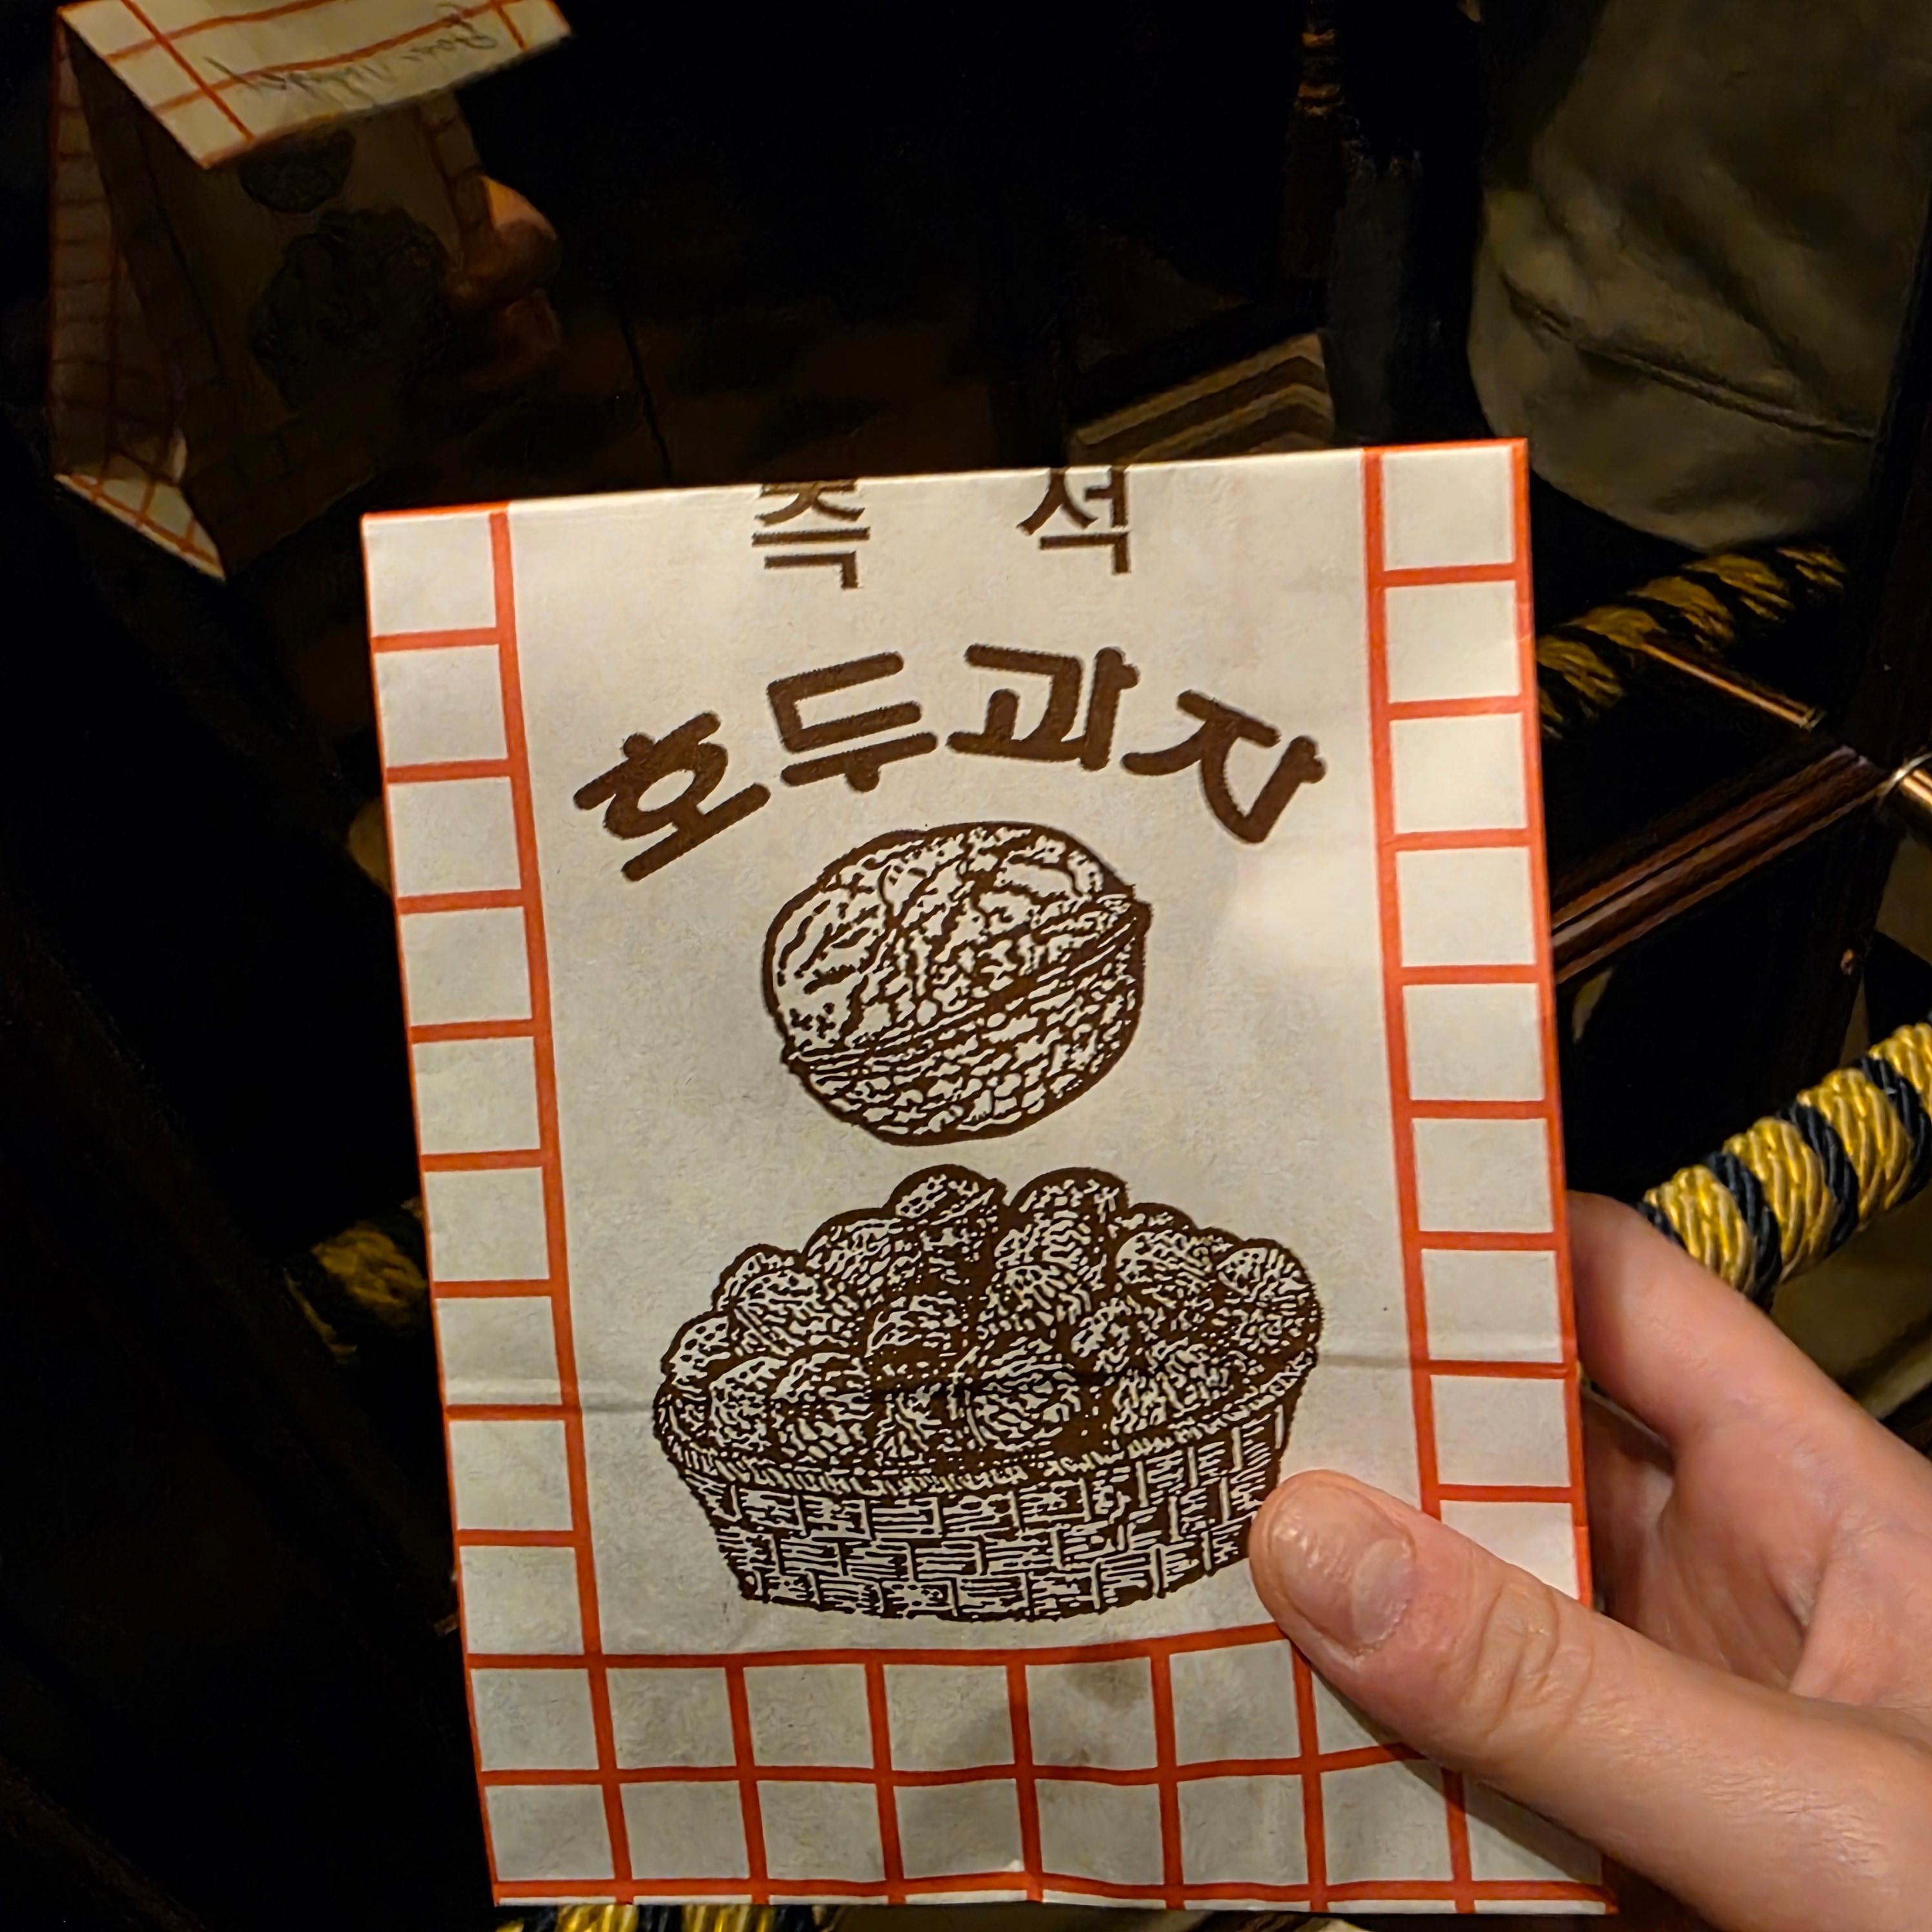 즉 석
호두과자